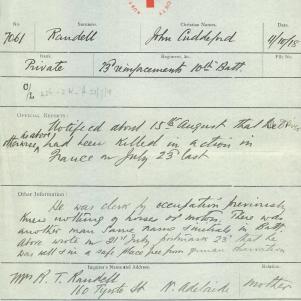 No. Surname. Christian Names.
7061 Randell John Cuddeford 11/10/18
Rank. Regiment, &c. File No.
Private 23 reinforcements 10th Batt.
O/L
OFFICIAL REPORTS:
Notified about 15th August that
is above
otherwise had been killed in action in
France on July 23rd last
Other Information:
He was clerk by occupation previously
knew nothing of horses or motors. There was
another man same name & initials in Batt.
Above wrote on 21st July postmark 23rd that he
was well & in a safe place free from german observation
Inquirer's Name and Address. Relation:
Mrs R. T. Randell Mother
180 Tynte St N. Adelaide